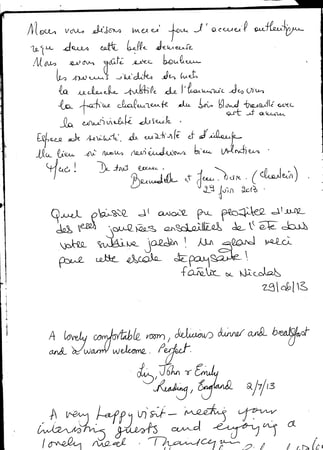 Nous vous disons merci pour l'accueil authentique
reçu dans cette belle demeure
Nous avons goûté avec bonheur
les saveurs inédites des mets
la recherche subtile de l'harmonie des vins
la patine chaleureuse du bois blond travaillé avec
art et amour
la convivialité discrète.
Espace de sérénité, de créativité et d'échange
Un lieu où nous reviendrons bien volontiers.
Merci! De tout coeur.
Bernadette et Jean (Charlevin)
29 juin 2013
Quel plaisir d'avoir pu profiter d'une
des 1ères journées ensoleillées de l'été dans
votre sublime jardin! Un grand merci
pour cette escale dépaysante!
Nicolas
29/06/13
A lovely comfortable room, delicious dinner and breakfast
and a warm welcome. Perfect.
Liz, John & Emily
Reading, England 2/7/13
A very happy visit - meeting your
interesting guests and enjoying a
lovely meal. Thankyou